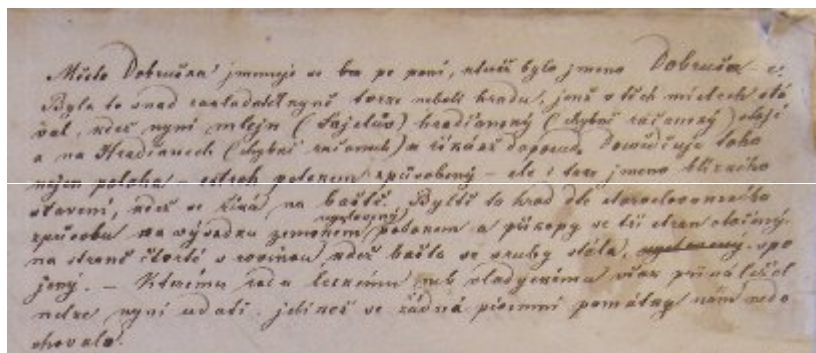 Město Dobruška jmenuje se tra po paní, ktréž bylo jmeno Dobruša - e.
Byla to snad zakladatelkyně tvrze neboli hradu, jenž v těch místech stá
val, kdež nyní mlejn (Sajetův) hradčanský (chybně račanský) stojí
a na Hradčanech (chybně račanech) a říkáš doposud. Dosvědčuje toho
nejen poloha – ostroh potokem způsobený – ale i toto jmeno blízkého
stavení, kdež se říká na baště. Bylť to hrad dle staroslovanského
způsobu na vývěsku zemním potokem a příkopy se tří stran otočený
na straně čtvrté s rovinou kdež bašta se sruby stála, spo
jený. – Kterému rodu leckémů neb vladyckému však přináležel
nelze nyní udati, jelikož se žádná písemní památky nám nedo
chovala.